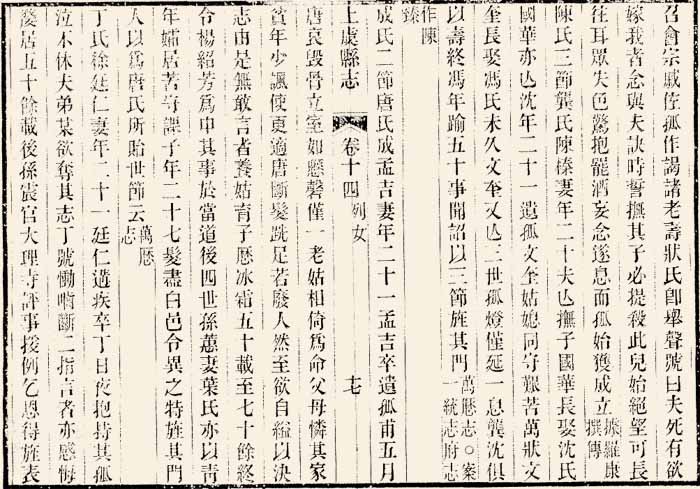 召會宗戚侘孤作謁諸老壽狀氏卽舉聲號曰夫死有欲
嫁我者念與夫訣時誓撫其子必提殺此兒始絕望可長
往耳眾失色驚抱罷酒妄念遂息而孤始獲成立據羅康
撰傳
陳氏三節龔氏陳榛妻年二十夫亾撫子國華長娶沈氏
國華亦亾沈年二十一遺孤文奎姑媳同守艱苦萬狀文
奎長娶馮氏未久文奎又亾三世孤燈僅延一息龔沈俱
以壽終馮年踰五十事聞詔以三節旌其門萬厯志○案
一統志府志
作陳
臻
成氏二節唐氏成孟吉妻年二十一孟吉卒遺孤甫五月
上虞縣志
卷十四 列女
七
唐哀毀骨立室如懸磬僅一老姑相倚爲命父母憐其家
貧年少諷使更適唐斷髮跣足若廢人然至欲自縊以決
志由是無敢言者養姑育子厯冰霜五十載至七十餘終
令楊紹芳爲申其事於當道後四世孫蕙妻葉氏亦以靑
年孀居苦守課子年二十七髮盡白邑令異之特旌其門
人以爲唐氏所貽世節云萬厯
志
丁氏徐廷仁妻年二十一廷仁遘疾卒丁日夜抱持其孤
泣不休夫弟某欲奪其志丁號慟嚙斷二指言者亦感悔
嫠居五十餘載後孫震官大理寺評事援例乞恩得旌表